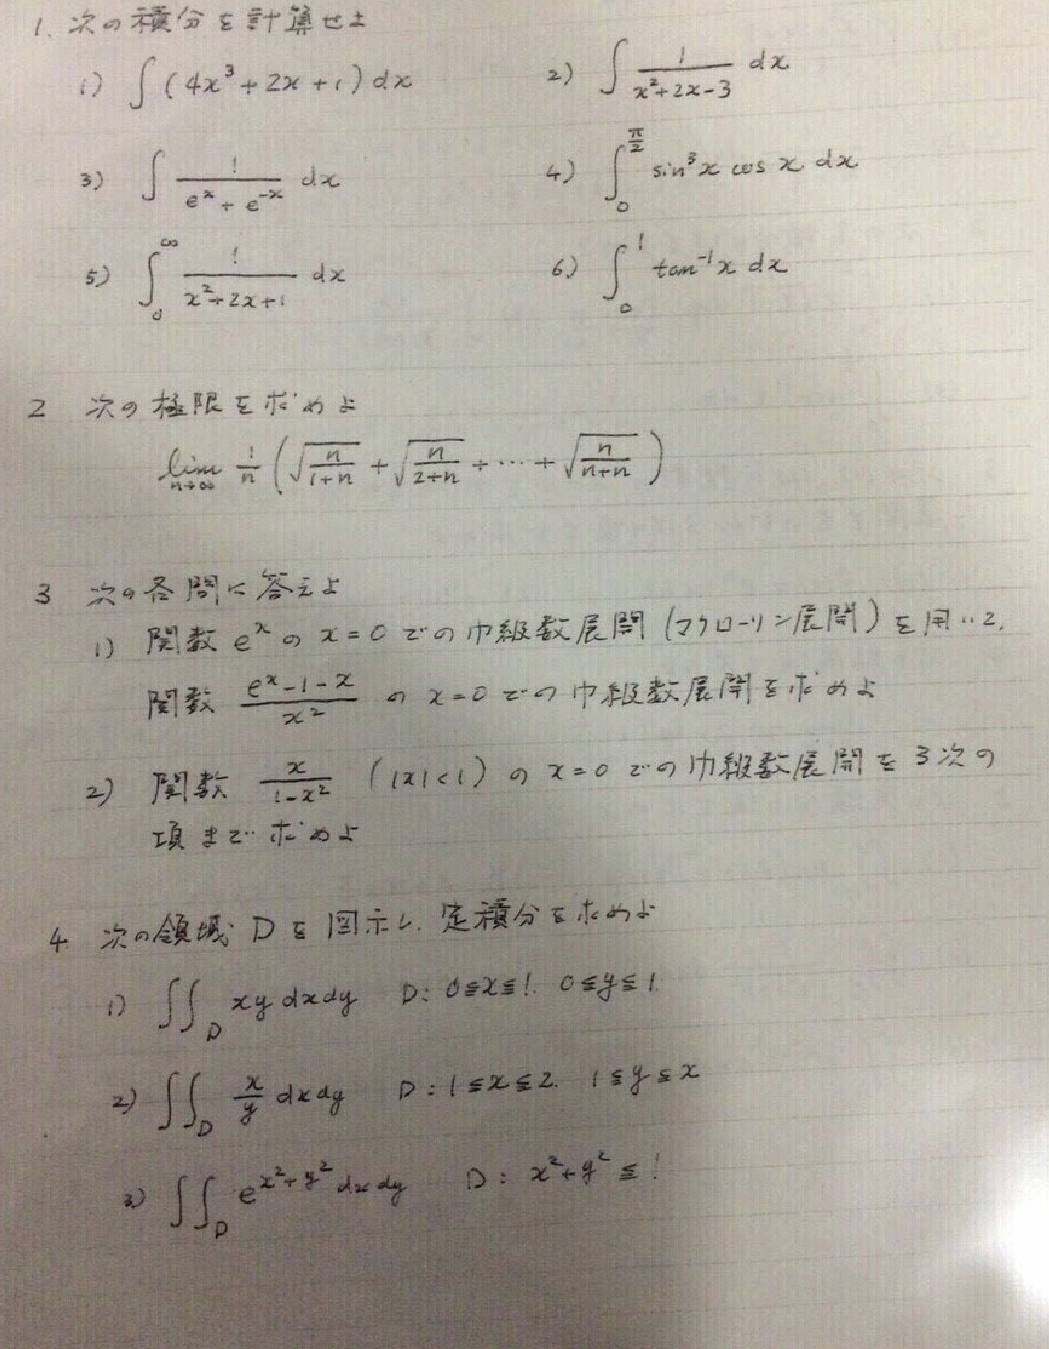 1. 次の積分を計算せよ
1) ∫ (4x³+2x+1) dx 2) ∫ 1/(x²+2x-3) dx
3) ∫ 1/(eˣ+e⁻ˣ) dx 4) ∫₀^(π/2) sin³x cos x dx
5) ∫₀^∞ 1/(x²+2x+1) dx 6) ∫₀¹ tan⁻¹x dx
2 次の極限を求めよ
lim n→∞ 1/n (√(n/(1+n)) + √(n/(2+n)) + … + √(n/(n+n)))
3 次の各問に答えよ
1) 関数 eˣ の x=0 での巾級数展開 (マクローリン展開) を用いて,
関数 (eˣ-1-x)/x² の x=0 での巾級数展開を求めよ
2) 関数 x/(1-x²) (|x|<1) の x=0 での巾級数展開を 3次の
項まで求めよ
4. 次の領域 D を図示し, 定積分を求めよ
1) ∬_D xy dxdy D: 0≦x≦1. 0≦y≦1.
2) ∬_D x/y dxdy D: 1≦x≦2. 1≦y≦x
3) ∬_D e^(x²+y²) dxdy D: x²+y²≦1